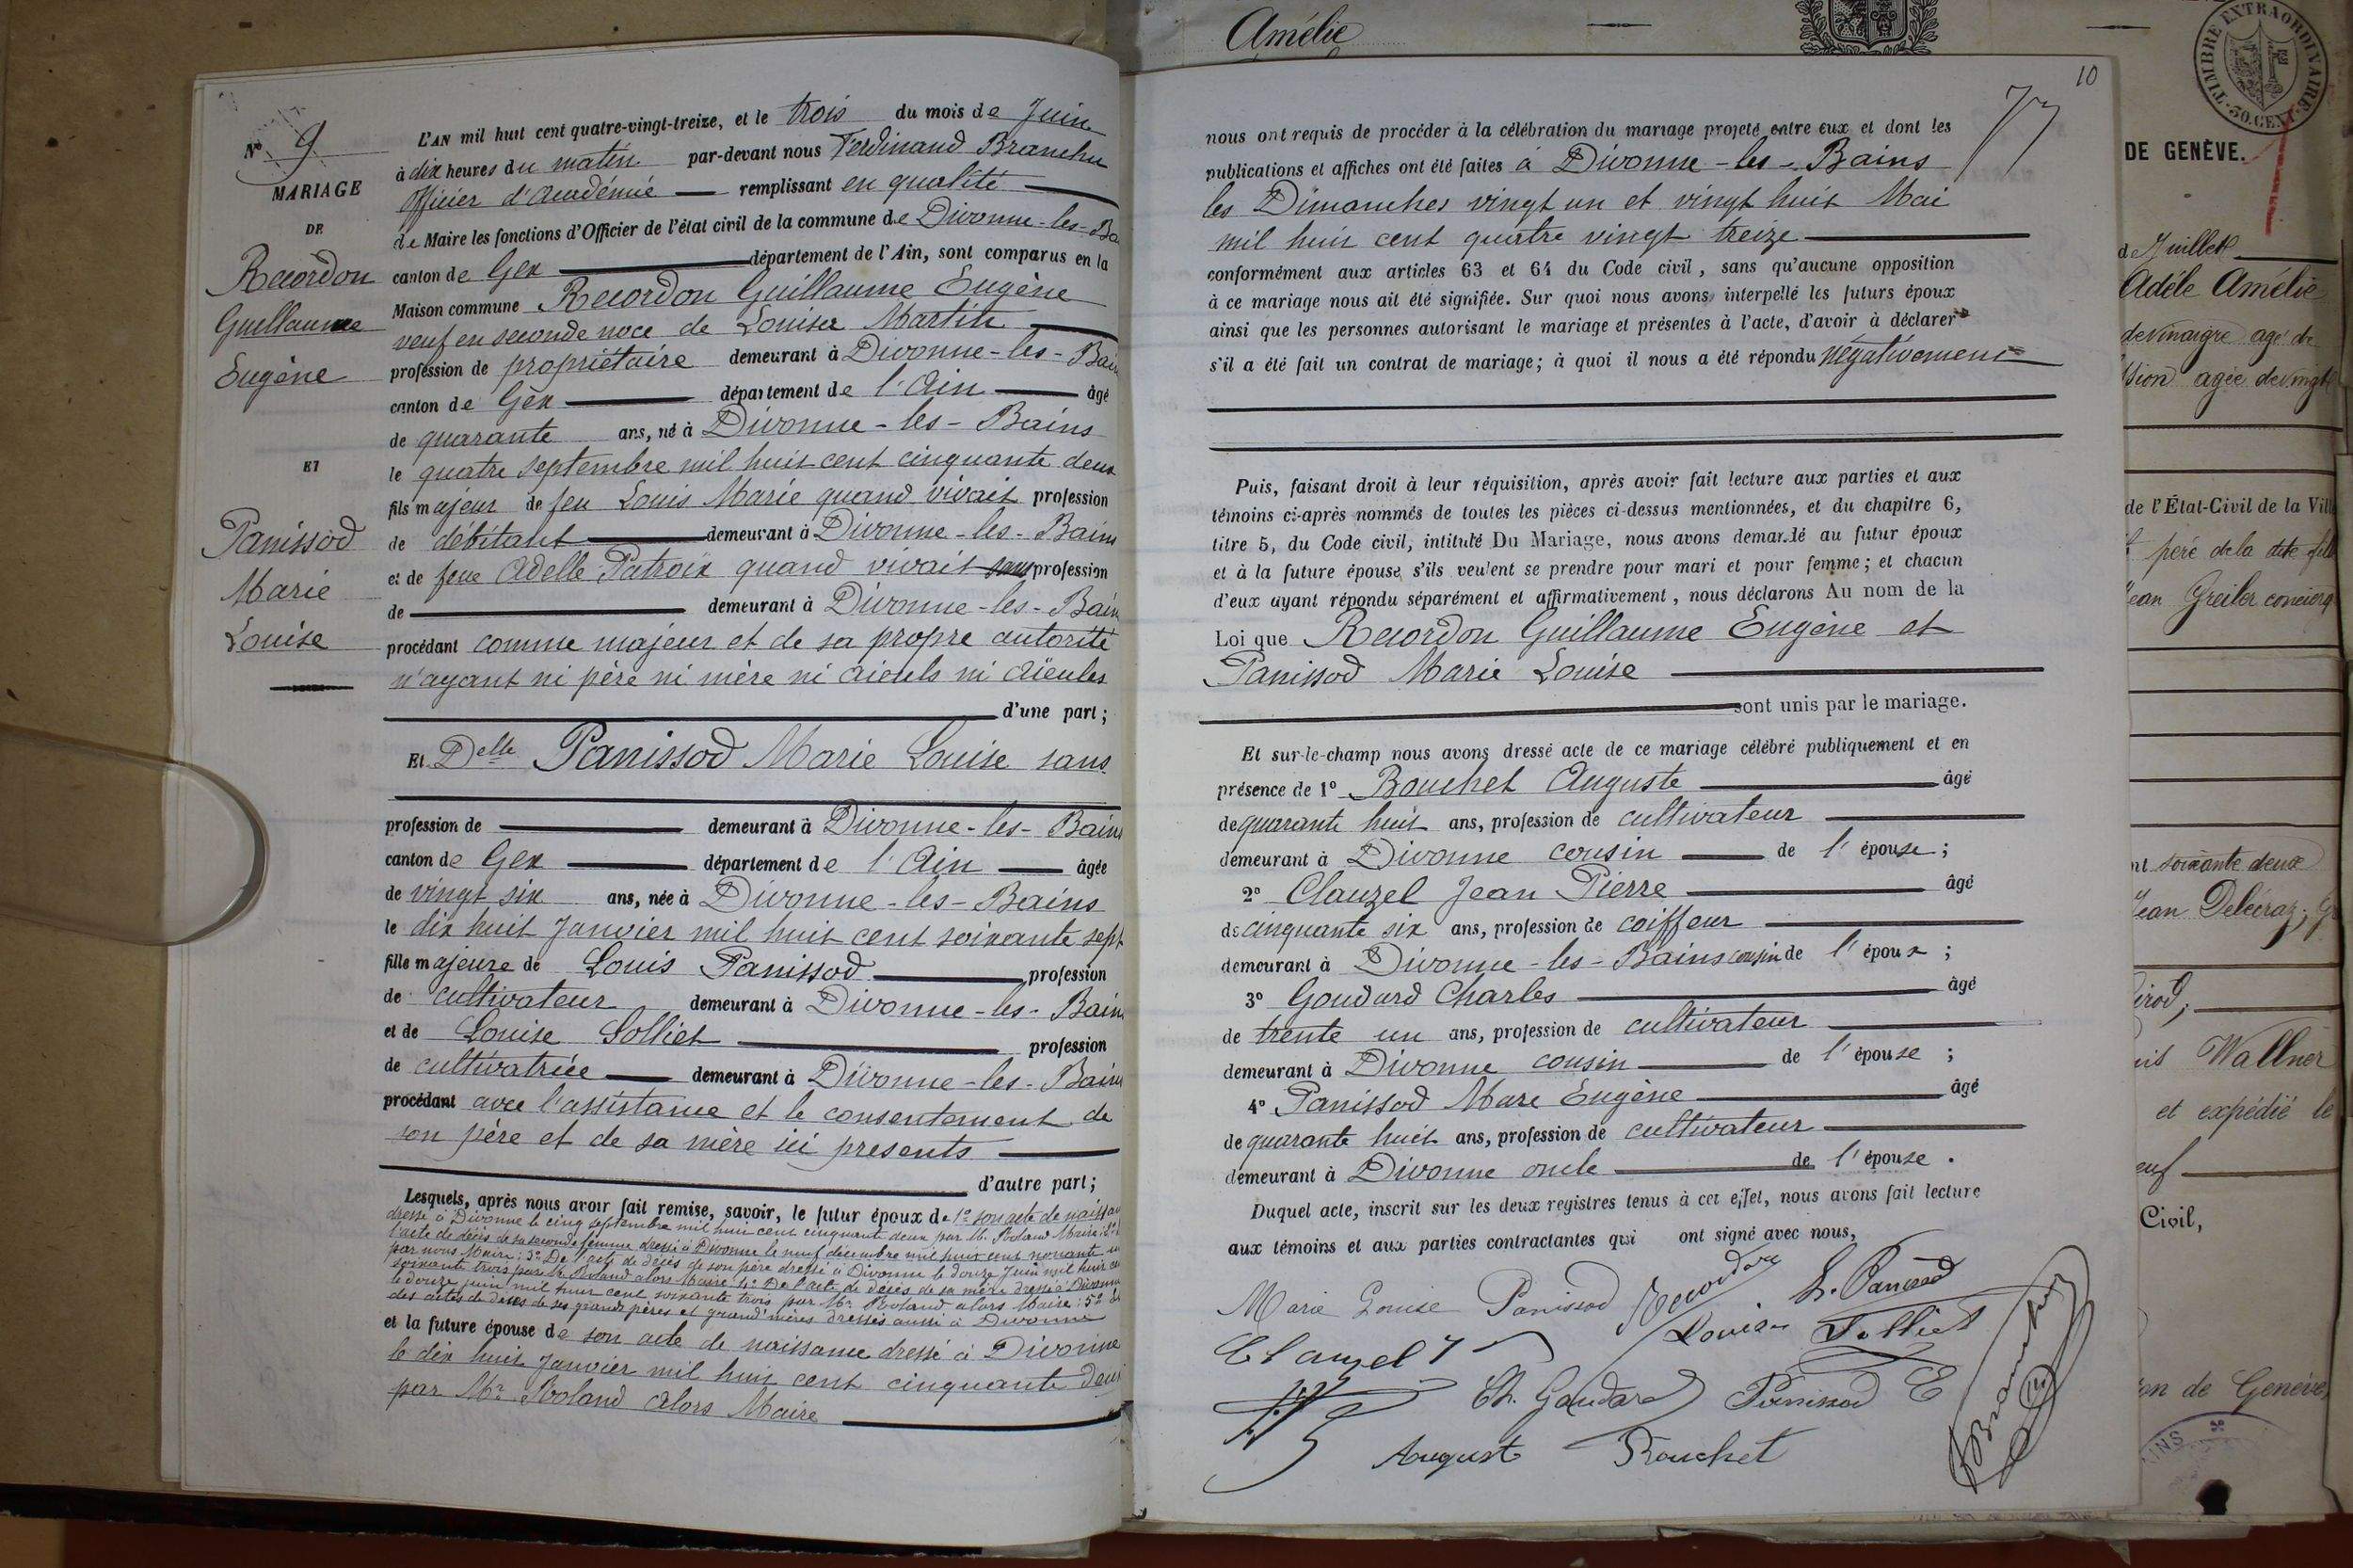 N° 9
MARIAGE
DE
Recordon
Guillaume
Eugène
ET
Panissod
Marie
Louise
L'AN mil huit cent quatre-vingt-treize, et le trois du mois de Juin
à dix heures du matin par-devant nous Ferdinand Branchu
Officier d'Académie remplissant en qualité
de Maire les fonctions d'Officier de l'état civil de la commune de Divonne-les-Ba
canton de Gex département de l'Ain, sont comparus en la
Maison commune Recordon Guillaume Eugène
veuf en seconde noce de Louise Martin
profession de propriétaire demeurant à Divonne-les-Bain
canton de Gex département de l'Ain âgé
de quarante ans, né à Divonne-les-Bains
le quatre septembre mil huit cent cinquante deux
fils majeur de feu Louis Marie quand vivait profession
de débitant demeurant à Divonne-les-Bains
et de feue Adelle Patroix quand vivait sans profession
de demeurant à Divonne-les-Bain
procédant comme majeur et de sa propre autorité
n'ayant ni père ni mère ni aïeuls ni aïeules
d'une part;
Et Delle Panissod Marie Louise sans
profession de demeurant à Divonne-les-Bains
canton de Gex département de l'Ain âgée
de vingt six ans, née à Divonne-les-Bains
le dix huit Janvier mil huit cent soixante sept
fille majeure de Louis Panissod profession
de cultivateur demeurant à Divonne-les-Bain
et de Louise Solliet profession
de cultivatrice demeurant à Divonne-les-Bain
procédant avec l'assistance et le consentement de
son père et de sa mère ici presents
d'autre part;
Lesquels, après nous avoir fait remise, savoir, le futur époux de 1° son acte de naissan
dressé à Divonne le cinq septembre mil huit cent cinquante deux par Mr. Roland Maire; 2°
l'acte de décès de sa seconde femme dressé à Divonne le neuf décembre mil huit cent nonante un
par nous Maire; 3° De l'acte de décès de son père dressé à Divonne le douze Juin mil huit ce
soixante trois par Mr Roland alors Maire 4° De l'acte de décès de sa mère dressé à Divonne
le douze juin mil huit cent soixante trois par Mr Roland alors Maire; 5°
des actes de décès de ses grands pères et grand'mères dressés aussi à Divonne
et la future épouse de son acte de naissance dressé à Divonne
le dix huit Janvier mil huit cent cinquante deux
par Mr Roland alors Maire
10
nous ont requis de procéder à la célébration du mariage projeté entre eux et dont les
publications et affiches ont été faites à Divonne-les-Bains
les Dimanches vingt un et vingt huit Mai
mil huit cent quatre vingt treize
conformément aux articles 63 et 64 du Code civil, sans qu'aucune opposition
à ce mariage nous ait été signifiée. Sur quoi nous avons interpellé les futurs époux
ainsi que les personnes autorisant le mariage et présentes à l'acte, d'avoir à déclarer
s'il a été fait un contrat de mariage; à quoi il nous a été répondu négativement
Puis, faisant droit à leur réquisition, après avoir fait lecture aux parties et aux
témoins ci-après nommés de toutes les pièces ci-dessus mentionnées, et du chapitre 6,
titre 5, du Code civil, intitulé Du Mariage, nous avons demandé au futur époux
et à la future épouse s'ils veulent se prendre pour mari et pour femme; et chacun
d'eux ayant répondu séparément et affirmativement, nous déclarons Au nom de la
Loi que Recordon Guillaume Eugène et
Panissod Marie Louise
sont unis par le mariage.
Et sur-le-champ nous avons dressé acte de ce mariage célébré publiquement et en
présence de 1° Bouchet Auguste âgé
de quarante huit ans, profession de cultivateur
demeurant à Divonne cousin de l'épouse;
2° Clauzel Jean Pierre âgé
de cinquante six ans, profession de coiffeur
demeurant à Divonne-les-Bains cousin de l'époux;
3° Goudard Charles âgé
de trente un ans, profession de cultivateur
demeurant à Divonne cousin de l'épouse;
4° Panissod Marc Eugène âgé
de quarante huit ans, profession de cultivateur
demeurant à Divonne oncle de l'épouse.
Duquel acte, inscrit sur les deux registres tenus à cet effet, nous avons fait lecture
aux témoins et aux parties contractantes qui ont signé avec nous,
Marie Louise Panissod Recordon L. Panissod
Clauzel Louise Solliet
Ch. Goudard Panissod E
August Bouchet
Branchu
Amélie
TIMBRE EXTRAORDINAIRE
30. CENT.
DE GENÈVE.
de Juillet
Adèle Amélie
de vinaigre agé de
agée de vingt
de l'État-Civil de la Vill
père de la dite fille
Jean Greiler concierg
soixante deux
Jean Deléiraz,
uis Wallner
et expédié le
Civil,
on de Genève